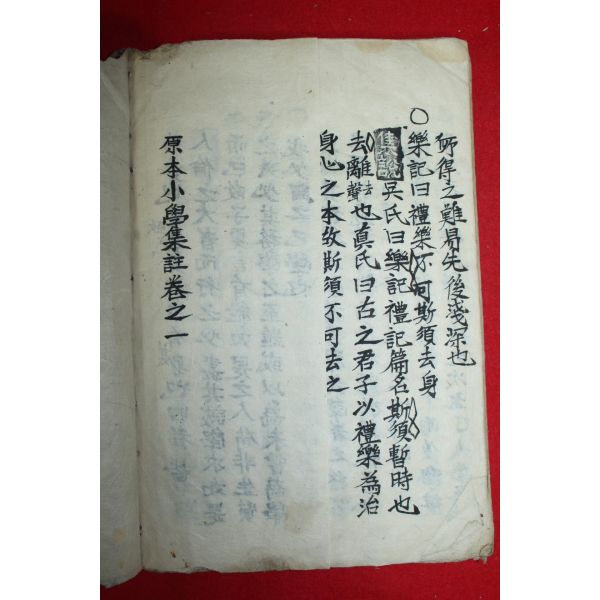 所得之難易先後淺深也
○樂記曰禮樂不可斯須去身
集說 吳氏曰樂記禮記篇名斯須暫時也
去離去聲也眞氏曰古之君子以禮樂為治
身心之本故斯須不可去之
原本小學集註卷之一